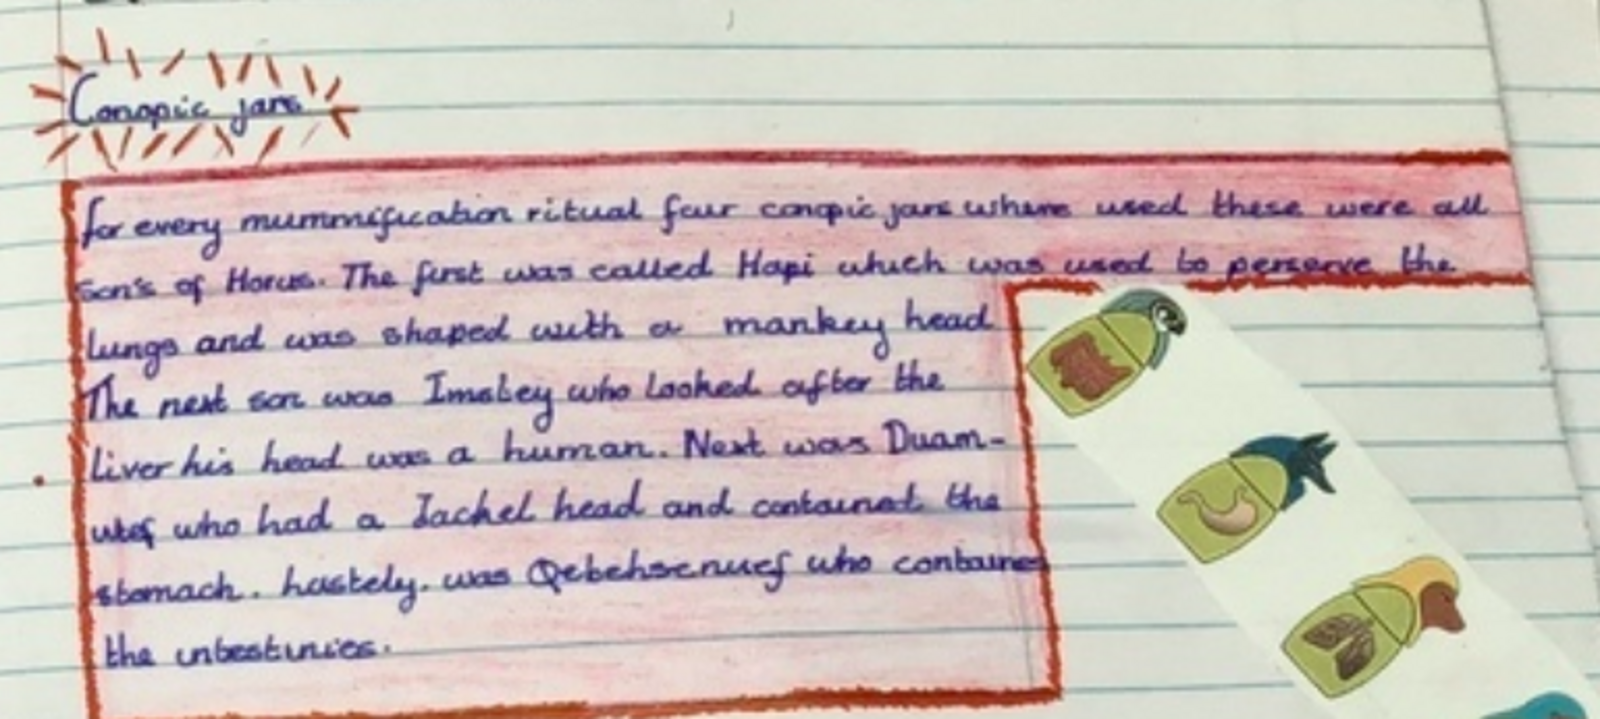 Conopic jars
for every mummification ritual four conopic jars where used these were all
son's of Horus. The first was called Hapi which was used to perserve the
lungs and was shaped with a monkey head
The next son was Imstey who looked after the
liver his head was a human. Next was Duam-
utef who had a Jackel head and contained the
stomach. hastely. was Qebehsenuef who containes
the intestinies.